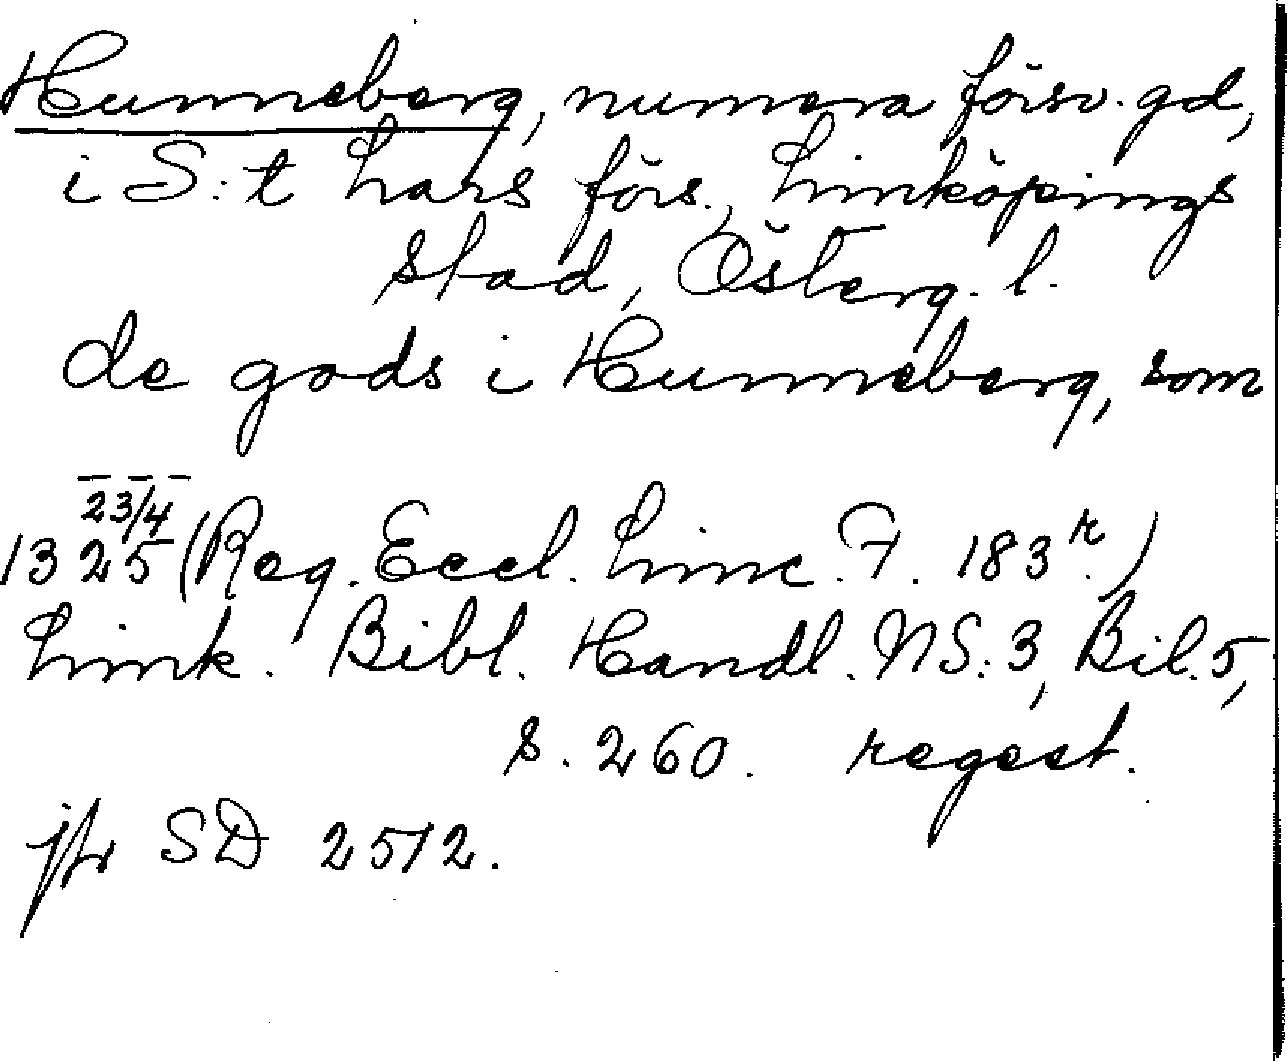 Hunneberg, numera försv. gd,
i S:t Lars förs., Linköpings
stad, Österg. l.
de gods i Hunneberg, som
– – –
23/4
1325 (Reg. Eccl. Linc. F. 183 r.)
Link. Bibl. Handl. NS: 3, Bil. 5,
s. 260. regest.
jfr SD 2512.